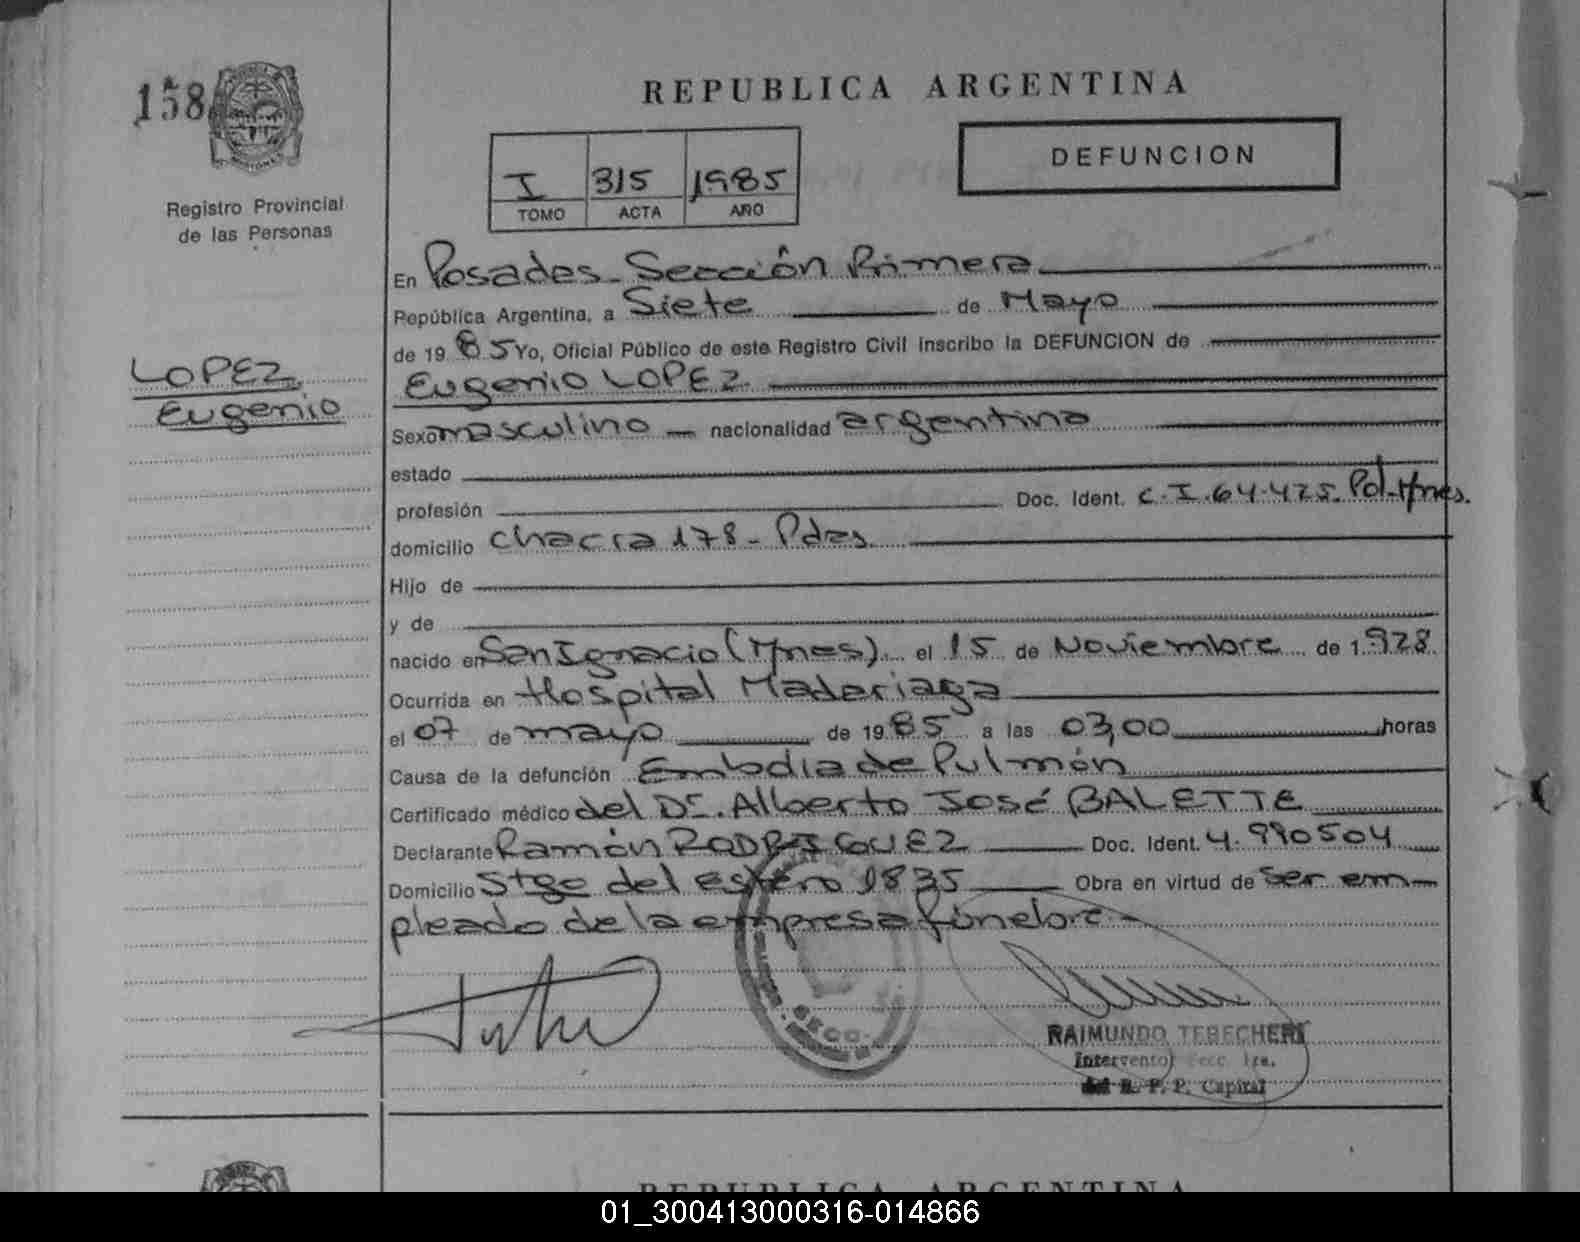 158
REPUBLICA ARGENTINA
I 315 1985
TOMO ACTA AÑO
DEFUNCION
Registro Provincial
de las Personas
LOPEZ,
Eugenio
En Posadas - Sección Primera
República Argentina, a Siete de Mayo
de 1985 Yo, Oficial Público de este Registro Civil inscribo la DEFUNCION de
Eugenio LOPEZ
Sexo masculino - nacionalidad argentina
estado
profesión Doc. Ident. C.I. 64.475. Pol. Mnes.
domicilio Chacra 178 - Pdas.
Hijo de
y de
nacido en San Ignacio (Mnes). el 15 de Noviembre de 1.928
Ocurrida en Hospital Madariaga
el 07 de mayo de 1985 a las 03,00 horas
Causa de la defunción Embolia de Pulmón
Certificado médico del Dr. Alberto José BALETTE
Declarante Ramón RODRIGUEZ Doc. Ident. 4.990504
Domicilio Stgo del estero 1835 Obra en virtud de Ser em-
pleado de la empresa fúnebre -
SECC.
RAIMUNDO TEBECHERI
Interventor Secc. 1ra.
del R. P. P. Capital
REPUBLICA ARGENTINA
01_300413000316-014866